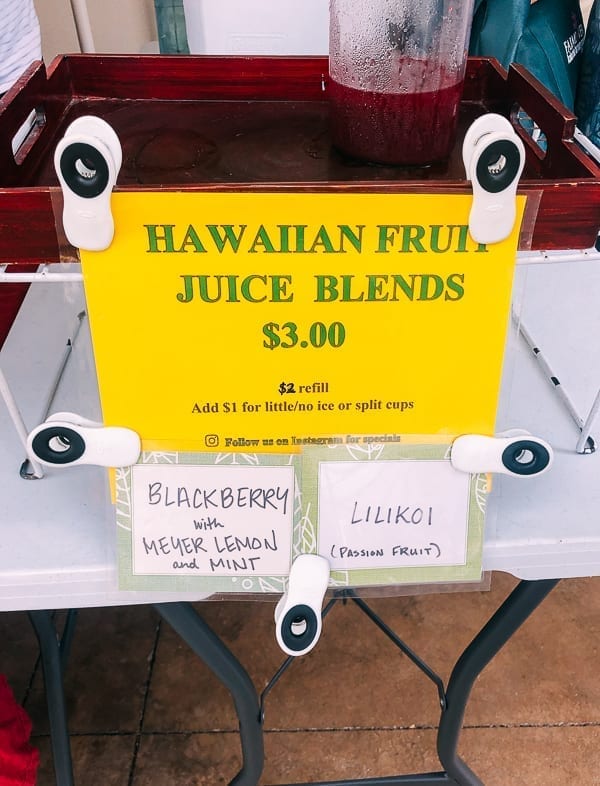 HAWAIIAN FRUIT
JUICE BLENDS
$3.00
$2 refill
Add $1 for little/no ice or split cups
Follow us on Instagram for specials
BLACKBERRY
with
MEYER LEMON
and MINT
LILIKOI
(PASSION FRUIT)